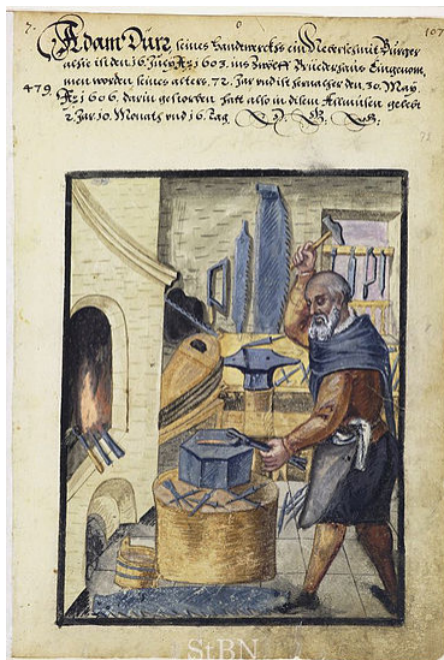 7. 107
Adam Dürr seines Handwercks ein Neberschmit Burger
alhie ist den 16 July Aº 1603. ins Zwölff Brüederhaus Eingenom,
men worden seines alters. 72. Jar vnd ist hernacher den. 30. May.
479. Aº 1606. darin gestorben hatt also in disem Allmusen gelebt
2. Jar. 10. Monath vnd 16. Tag.
StBN